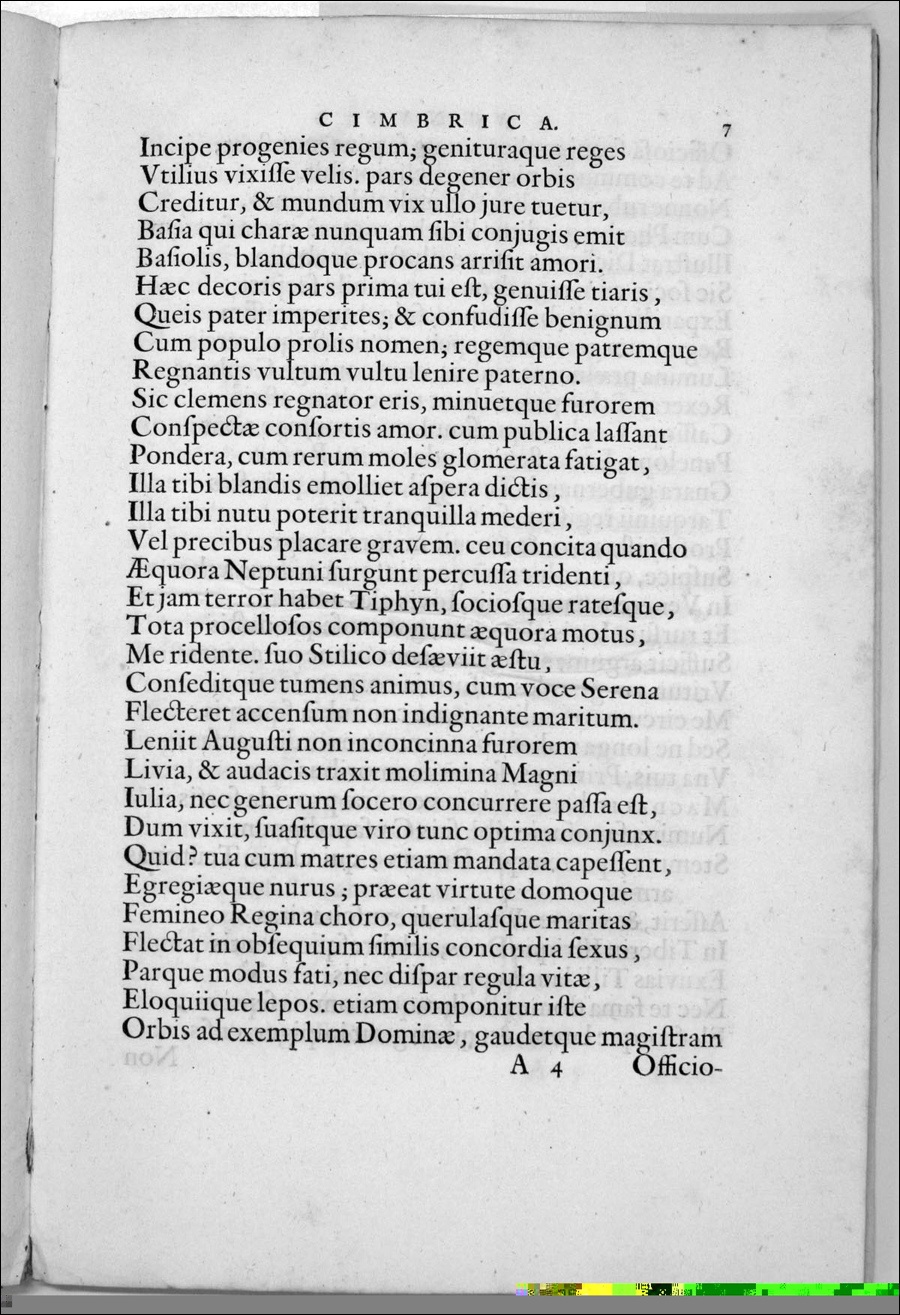 CIMBRICA. 7
Incipe progenies regum; genituraque reges
Vtilius vixiſſe velis. pars degener orbis
Creditur, & mundum vix ullo jure tuetur,
Baſia qui charæ nunquam ſibi conjugis emit
Baſiolis, blandoque procans arriſit amori.
Hæc decoris pars prima tui eſt, genuiſſe tiaris,
Queis pater imperites; & confudiſſe benignum
Cum populo prolis nomen; regemque patremque
Regnantis vultum vultu lenire paterno.
Sic clemens regnator eris, minuetque furorem
Conſpectæ conſortis amor. cum publica laſſant
Pondera, cum rerum moles glomerata fatigat,
Illa tibi blandis emolliet aſpera dictis,
Illa tibi nutu poterit tranquilla mederi,
Vel precibus placare gravem. ceu concita quando
Æquora Neptuni ſurgunt percuſſa tridenti,
Et jam terror habet Tiphyn, ſocioſque rateſque,
Tota procelloſos componunt æquora motus,
Me ridente. ſuo Stilico deſæviit æſtu,
Conſeditque tumens animus, cum voce Serena
Flecteret accenſum non indignante maritum.
Leniit Auguſti non inconcinna furorem
Livia, & audacis traxit molimina Magni
Iulia, nec generum ſocero concurrere paſſa eſt,
Dum vixit, ſuaſitque viro tunc optima conjunx.
Quid? tua cum matres etiam mandata capeſſent,
Egregiæque nurus; præeat virtute domoque
Femineo Regina choro, querulaſque maritas
Flectat in obſequium ſimilis concordia ſexus,
Parque modus fati, nec diſpar regula vitæ,
Eloquiique lepos. etiam componitur iſte
Orbis ad exemplum Dominæ, gaudetque magiſtram
A 4 Officio-